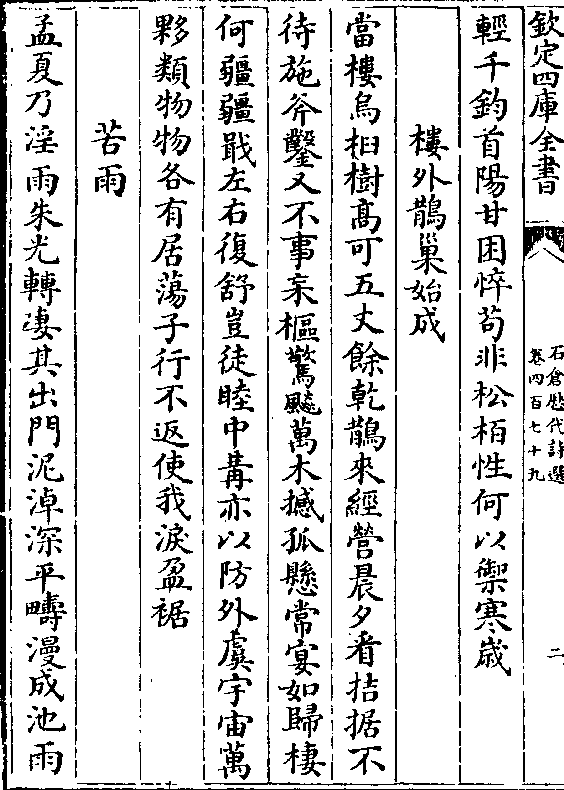 欽定四庫全書
石倉歷代詩選
卷四百七十九
二
輕千鈞首陽甘困悴苟非松栢性何以禦寒歲
樓外鵲巢始成
當樓烏桕樹髙可五丈餘乾鵲來經營晨夕看拮据不
待施斧鑿又不事桼樞驚飈萬木撼孤懸常宴如歸棲
何彊彊戢左右復舒豈徒睦中冓亦以防外虞宇宙萬
夥類物物各有居蕩子行不返使我淚盈裾
苦雨
孟夏乃淫雨朱光轉凄其出門泥淖深平疇漫成池雨